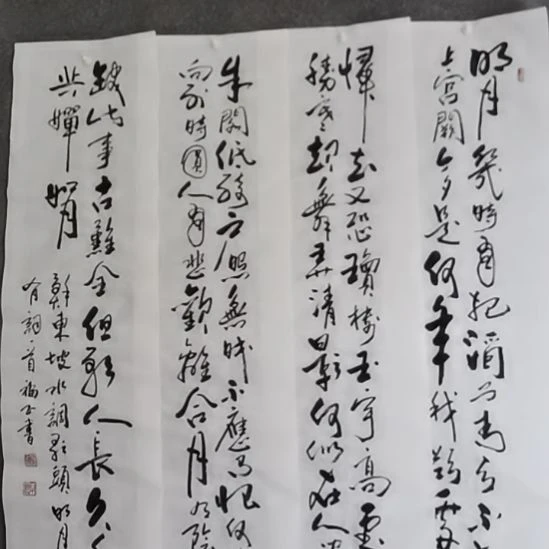 明月幾時有把酒问青天不
上宫闕今夕是何年我欲乘
歸去又恐瓊樓玉宇高處
勝寒起舞弄清影何似在人間
朱閣低綺户照無眠不應有恨何
向别時圓人有悲歡離合月有陰
缺此事古難全但願人長久千
共嬋娟
蘇東坡水調歌頭明月
有詞一首福玉書